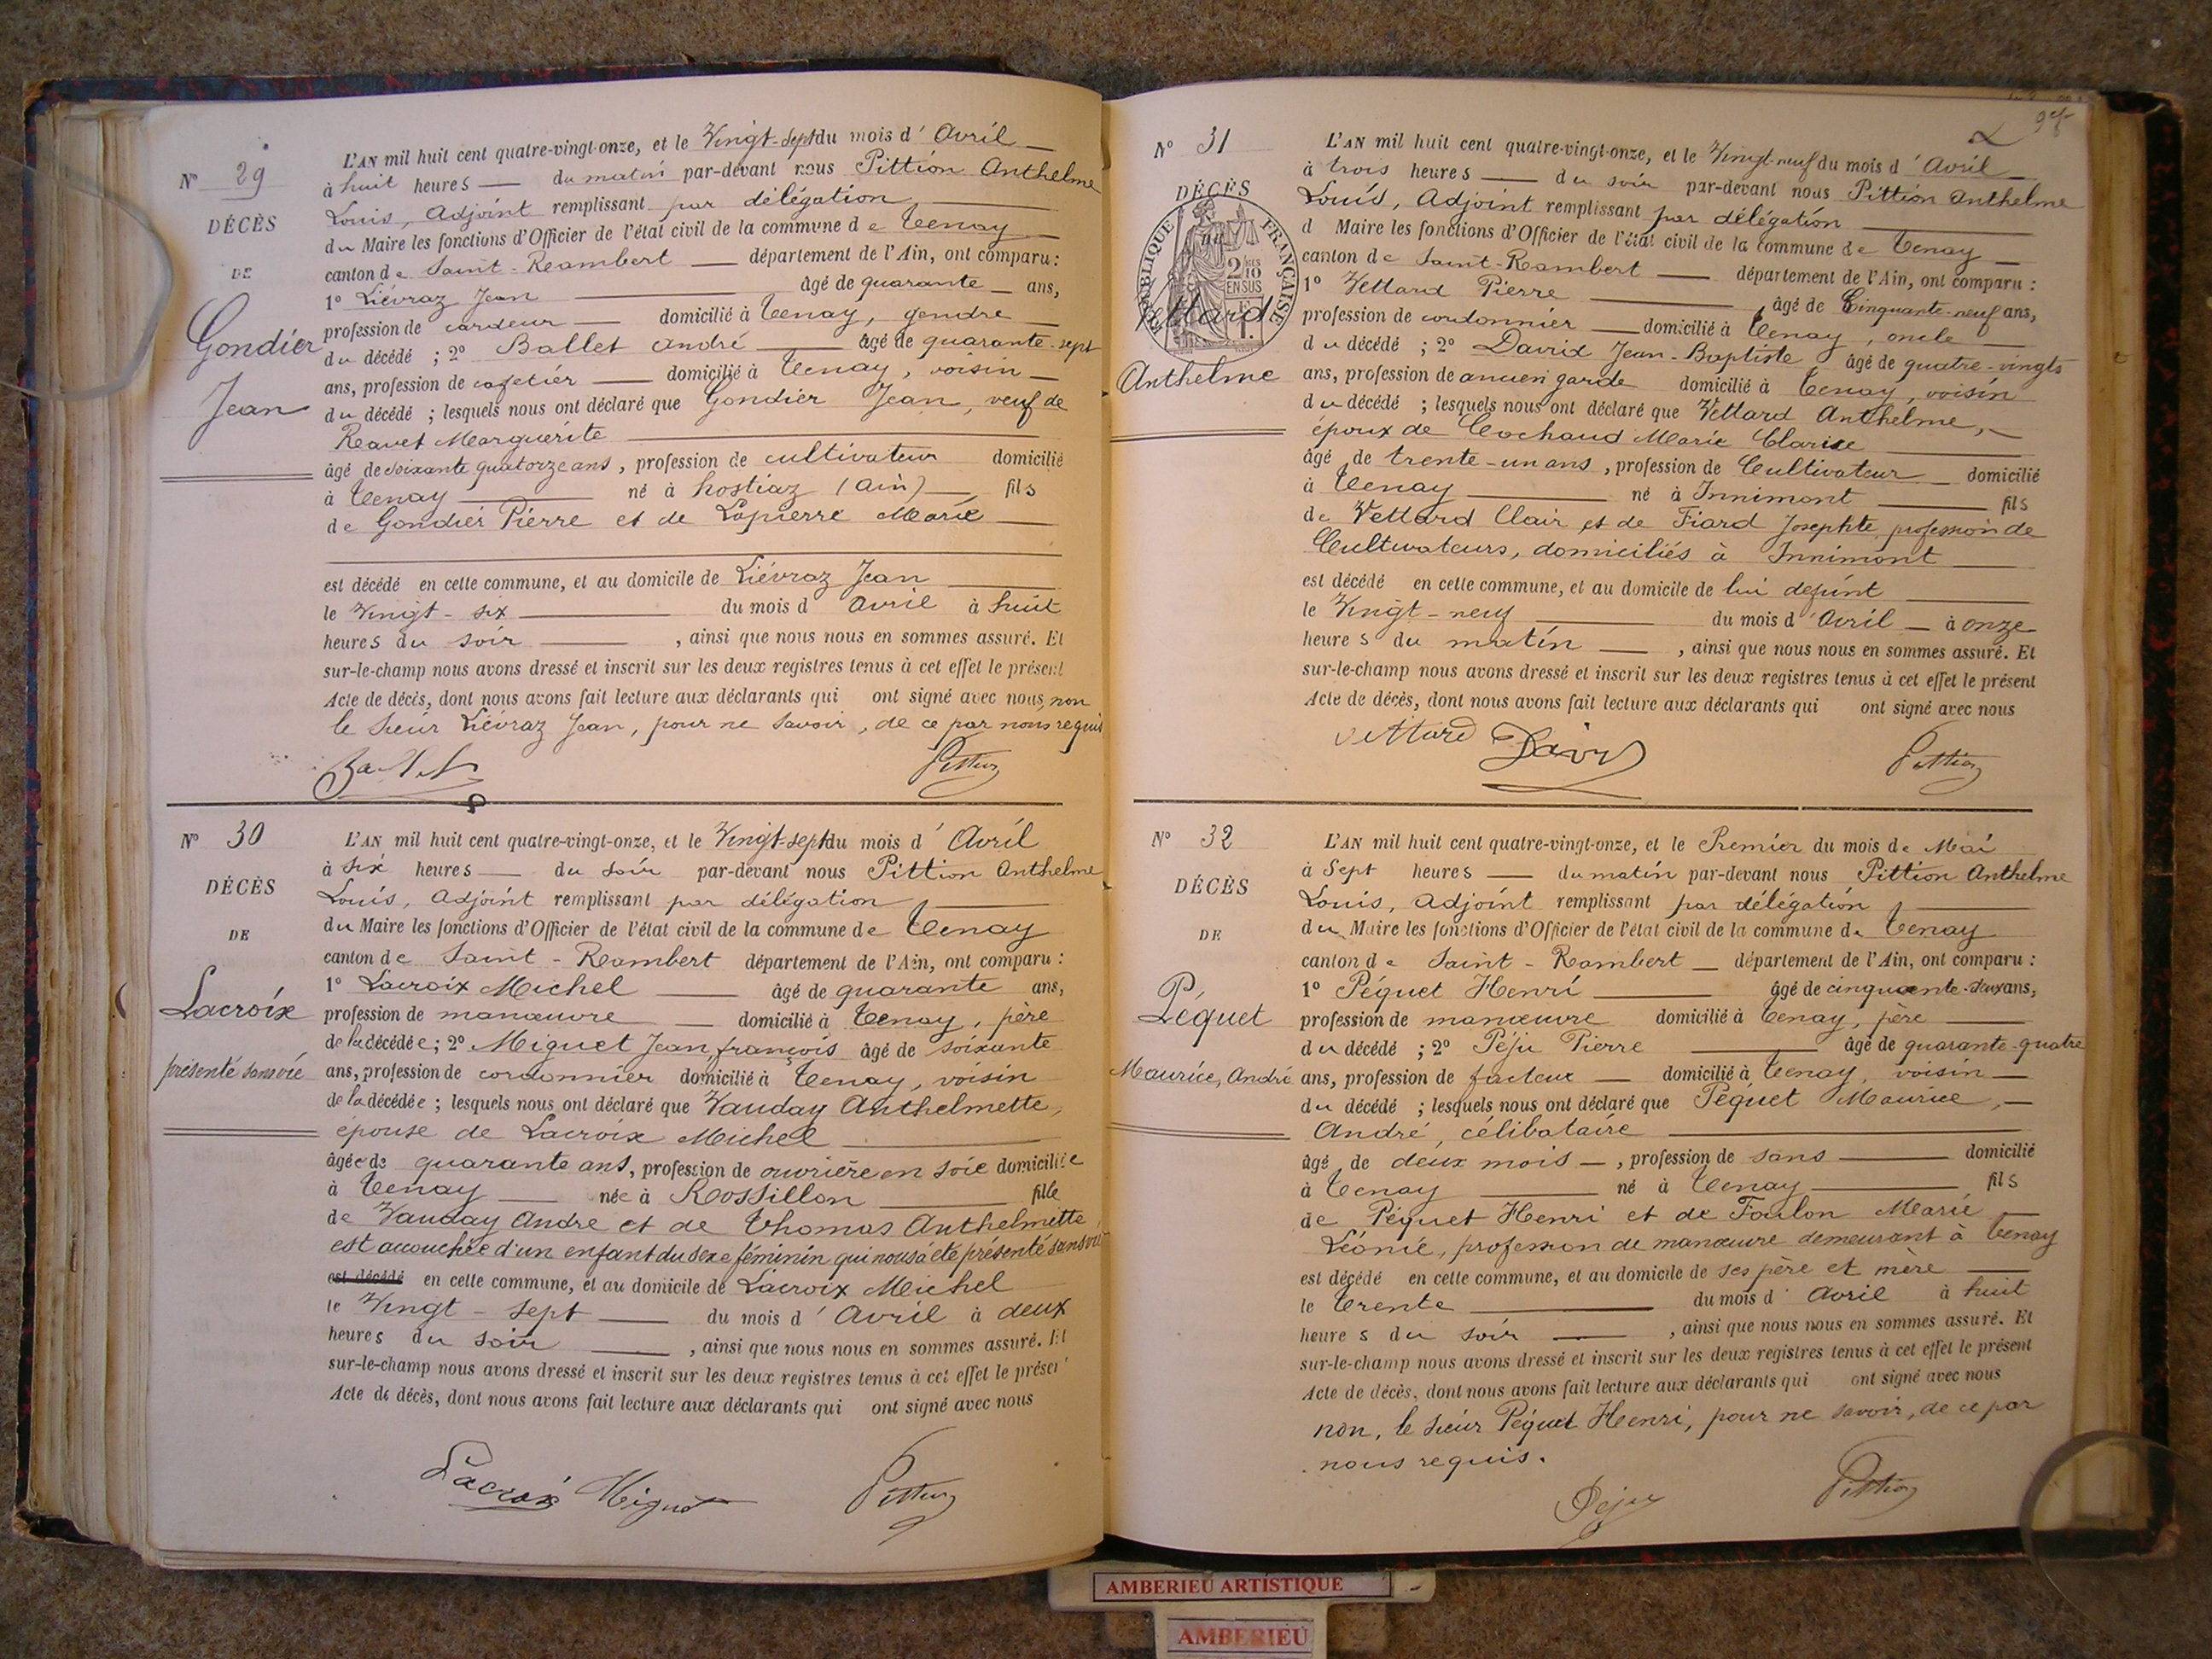 N° 29
DÉCÈS
DE
Gondier
Jean
L'AN mil huit cent quatre-vingt-onze, et le Vingt-sept du mois d' Avril
à huit heures du matin par-devant nous Pittion Anthelme
Louis, Adjoint remplissant par délégation
du Maire les fonctions d'Officier de l'état civil de la commune de Tenay
canton de Saint-Rambert département de l'Ain, ont comparu :
1° Liévraz Jean âgé de quarante ans,
profession de cardeur domicilié à Tenay, gendre
du décédé ; 2° Ballet André âgé de quarante-sept
ans, profession de cafetier domicilié à Tenay, voisin
du décédé ; lesquels nous ont déclaré que Gondier Jean, veuf de
Ravet Marguerite
âgé de soixante quatorze ans, profession de cultivateur domicilié
à Tenay né à hostiaz (Ain) fils
de Gondier Pierre et de Lapierre Marie
est décédé en cette commune, et au domicile de Liévraz Jean
le Vingt-six du mois d Avril à huit
heures du soir, ainsi que nous nous en sommes assuré. Et
sur-le-champ nous avons dressé et inscrit sur les deux registres tenus à cet effet le présent
Acte de décès, dont nous avons fait lecture aux déclarants qui ont signé avec nous, non
le sieur Liévraz Jean, pour ne savoir, de ce par nous requis
Ballet Pittion
N° 30
DÉCÈS
DE
Lacroix
présenté sans vie
L'AN mil huit cent quatre-vingt-onze, et le Vingt-sept du mois d' Avril
à six heures du soir par-devant nous Pittion Anthelme
Louis, Adjoint remplissant par délégation
du Maire les fonctions d'Officier de l'état civil de la commune de Tenay
canton de Saint-Rambert département de l'Ain, ont comparu :
1° Lacroix Michel âgé de quarante ans,
profession de manœuvre domicilié à Tenay, père
de la décédée ; 2° Miguet Jean, françois âgé de soixante
ans, profession de cordonnier domicilié à Tenay, voisin
de la décédée ; lesquels nous ont déclaré que Vauday Anthelmette,
épouse de Lacroix Michel
âgée de quarante ans, profession de ouvrière en soie domiciliée
à Tenay née à Rossillon fille
de Vauday André et de Thomas Anthelmette,
est accouchée d'un enfant du sexe féminin qui nous a été présenté sans vie
est décédé en cette commune, et au domicile de Lacroix Michel
le Vingt-sept du mois d' Avril à deux
heures du soir, ainsi que nous nous en sommes assuré. Et
sur-le-champ nous avons dressé et inscrit sur les deux registres tenus à cet effet le présent
Acte de décès, dont nous avons fait lecture aux déclarants qui ont signé avec nous
Lacroix Miguet Pittion
N° 31
DÉCÈS
RÉPUBLIQUE FRANÇAISE
2/10 EN SUS
Vettard
Anthelme
L'AN mil huit cent quatre-vingt-onze, et le Vingt-neuf du mois d' Avril
à trois heures du soir par-devant nous Pittion Anthelme
Louis, Adjoint remplissant par délégation
d Maire les fonctions d'Officier de l'état civil de la commune de Tenay
canton de Saint-Rambert département de l'Ain, ont comparu :
1° Vettard Pierre, âgé de Cinquante-neuf ans,
profession de cordonnier domicilié à Tenay, oncle
du décédé ; 2° David Jean-Baptiste âgé de quatre-vingts
ans, profession de ancien garde domicilié à Tenay, voisin
du décédé ; lesquels nous ont déclaré que Vettard Anthelme,
époux de Cochaud Marie Clarisse
âgé de trente-un ans, profession de Cultivateur domicilié
à Tenay né à Innimont fils
de Vettard Clair et de Fiard Josephte profession de
Cultivateurs, domiciliés à Innimont
est décédé en cette commune, et au domicile de lui defunt
le Vingt-neuf du mois d' Avril à onze
heures du matin, ainsi que nous nous en sommes assuré. Et
sur-le-champ nous avons dressé et inscrit sur les deux registres tenus à cet effet le présent
Acte de décès, dont nous avons fait lecture aux déclarants qui ont signé avec nous
Vettard David Pittion
N° 32
DÉCÈS
DE
Péquet
Maurice, André
L'AN mil huit cent quatre-vingt-onze, et le Premier du mois de Mai
à Sept heures du matin par-devant nous Pittion Anthelme
Louis, adjoint remplissant par délégation
du Maire les fonctions d'Officier de l'état civil de la commune de Tenay
canton de Saint-Rambert département de l'Ain, ont comparu :
1° Péquet Henri âgé de cinquante-deux ans,
profession de manœuvre domicilié à Tenay, père
du décédé ; 2° Péju Pierre âgé de quarante-quatre
ans, profession de facteur domicilié à Tenay, voisin
du décédé ; lesquels nous ont déclaré que Péquet Maurice,
André, célibataire
âgé de deux mois, profession de sans domicilié
à Tenay né à Tenay fils
de Péquet Henri et de Foulon Marie
Léonie, profession de manœuvre demeurant à Tenay
est décédé en cette commune, et au domicile de ses père et mère
le trente du mois d Avril à huit
heures du soir, ainsi que nous nous en sommes assuré. Et
sur-le-champ nous avons dressé et inscrit sur les deux registres tenus à cet effet le présent
Acte de décès, dont nous avons fait lecture aux déclarants qui ont signé avec nous
non, le sieur Péquet Henri, pour ne savoir, de ce par
nous requis.
Péju Pittion
AMBERIEU ARTISTIQUE
AMBERIEU